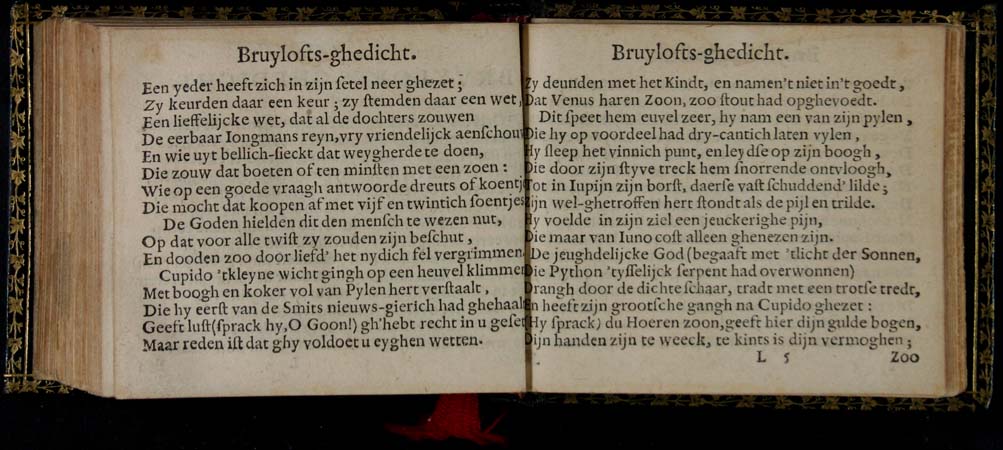 Bruylofts-ghedicht.
Een yeder heeft zich in zijn ſetel neer ghezet;
Zy keurden daar een keur; zy ſtemden daar een wet,
Een lieffelijcke wet, dat al de dochters zouwen
De eerbaar Iongmans reyn, vry vriendelijck aenſchou
En wie uyt bellich-ſieckt dat weygherde te doen,
Die zouw dat boeten of ten minſten met een zoen:
Wie op een goede vraagh antwoorde dreuts of koentj
Die mocht dat koopen af met vijf en twintich ſoentjes
De Goden hielden dit den menſch te wezen nut,
Op dat voor alle twiſt zy zouden zijn beſchut,
En dooden zoo door liefd' het nydich fel vergrimmen.
Cupido 'tkleyne wicht gingh op een heuvel klimmen
Met boogh en koker vol van Pylen hert verſtaalt,
Die hy eerſt van de Smits nieuws-gierich had ghehaalt
Geeft luſt (ſprack hy, O Goon!) gh'hebt recht in u geſet
Maar reden iſt dat ghy voldoet u eyghen wetten.
Bruylofts-ghedicht.
Zy deunden met het Kindt, en namen't niet in't goedt,
Dat Venus haren Zoon, zoo ſtout had opghevoedt.
Dit ſpeet hem euvel zeer, hy nam een van zijn pylen,
Die hy op voordeel had dry-cantich laten vylen,
Hy ſleep het vinnich punt, en leydſe op zijn boogh,
Die door zijn ſtyve treck hem ſnorrende ontvloogh,
Tot in Iupijn zijn borſt, daerſe vaſt ſchuddend' lilde;
Zijn wel-ghetroffen hert ſtondt als de pijl en trilde.
Hy voelde in zijn ziel een jeuckerighe pijn,
Die maar van Iuno coſt alleen ghenezen zijn.
De jeughdelijcke God (begaaft met 'tlicht der Sonnen,
Die Python 'tyſſelijck ſerpent had overwonnen)
Drangh door de dichte ſchaar, tradt met een trotſe tredt,
En heeft zijn grootſche gangh na Cupido ghezet:
(Hy ſprack) du Hoeren zoon, geeft hier dijn gulde bogen,
Dijn handen zijn te weeck, te kints is dijn vermoghen;
L 5 Zoo